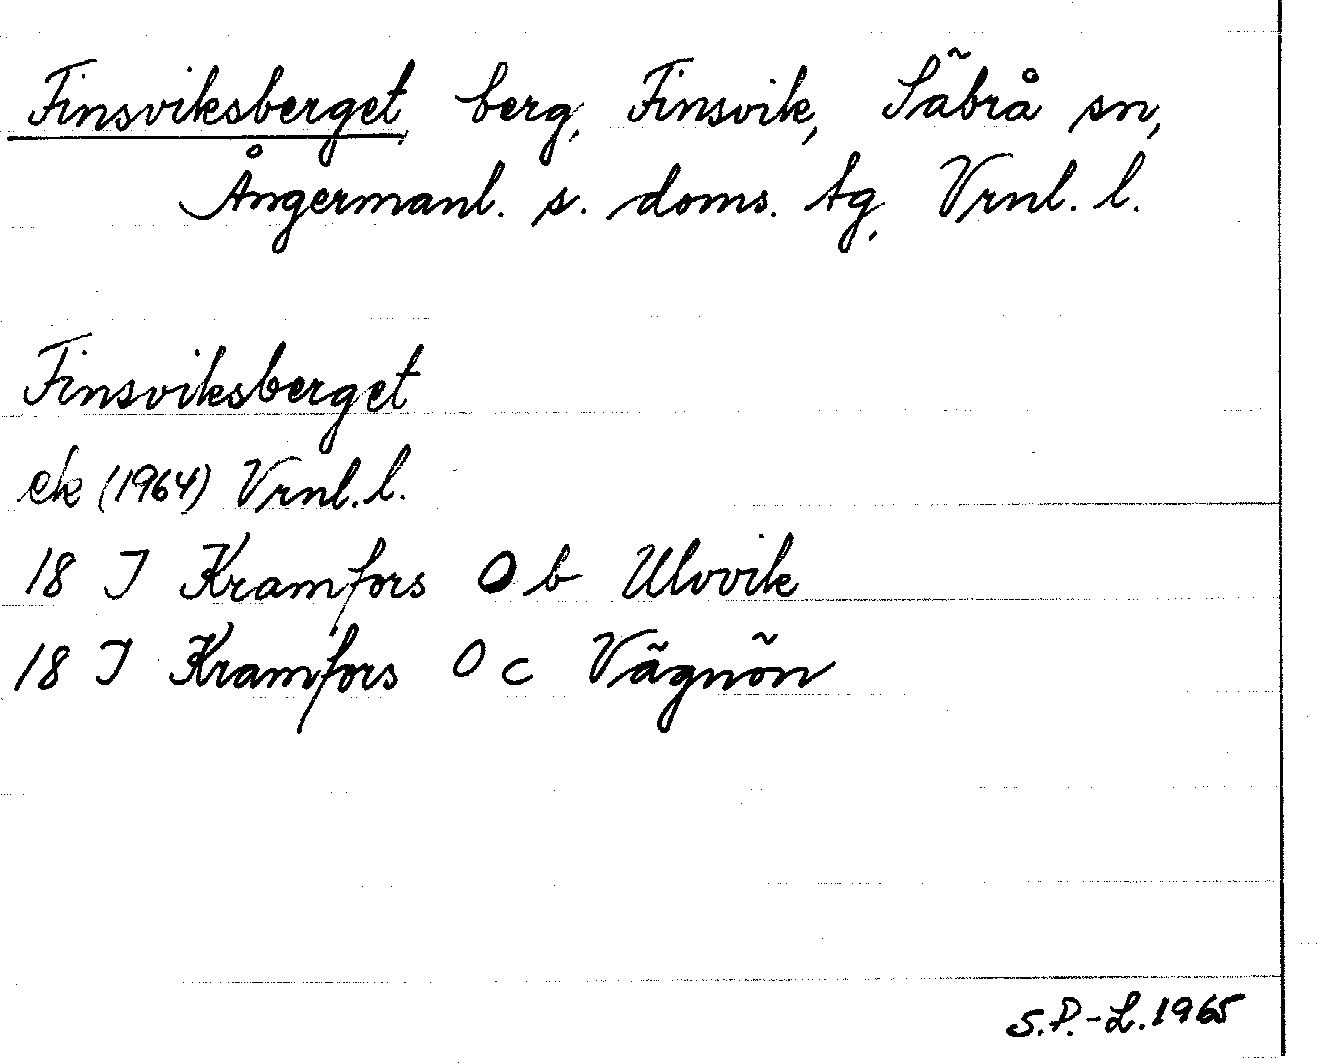 Finsviksberget, berg, Finsvik, Säbrå sn,
Ångermanl. s. doms. tg, Vrnl. l.
Finsviksberget
ek (1964) Vrnl. l.
18 I Kramfors O b Ulvvik
18 I Kramfors O c Vägnön
S.P.-L. 1965